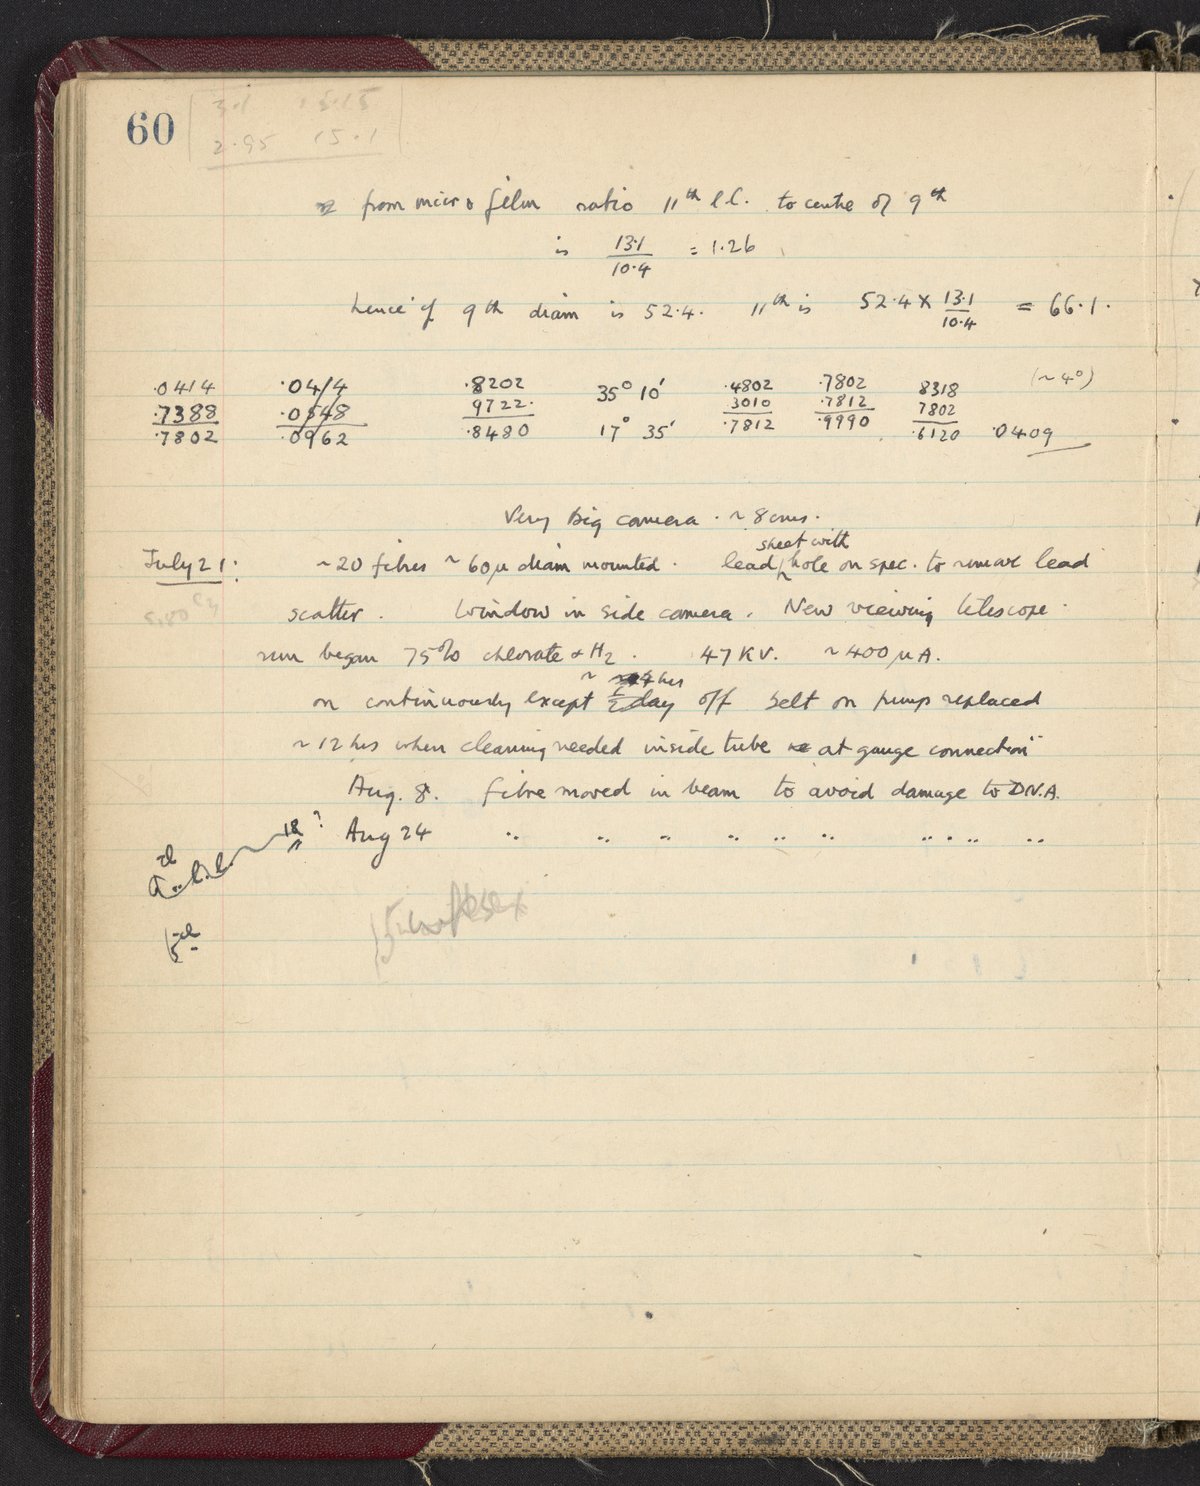 60
3.1 15.15
2.95 15.1
from micro film ratio 11th l.l. to centre of 9th
is 13.1/10.4 = 1.26
hence if 9th diam is 52.4. 11th is 52.4 × 13.1/10.4 = 66.1.
.0414 .0414 .8202 35° 10′ .4802 .7802 8318 (~4°)
.7388 .0548 9722. 3010 .7812 7802
.7802 .0962 .8480 17° 35′ .7812 .9990 .6120 .0409
Very big camera. ~8 cms.
sheet with
July 21: ~20 fibres ~60μ diam mounted. lead hole on spec. to remove lead
scatter. Window in side camera. New viewing telescope.
run began 75% chlorate & H2. 47 KV. ~400 μA.
~ 4 hrs
on continuously except ½ day off belt on pump replaced
~12 hrs when cleaning needed inside tube at gauge connection
Aug. 8. fibre moved in beam to avoid damage to D.N.A.
18 ? Aug 24 " " " " " " " " "